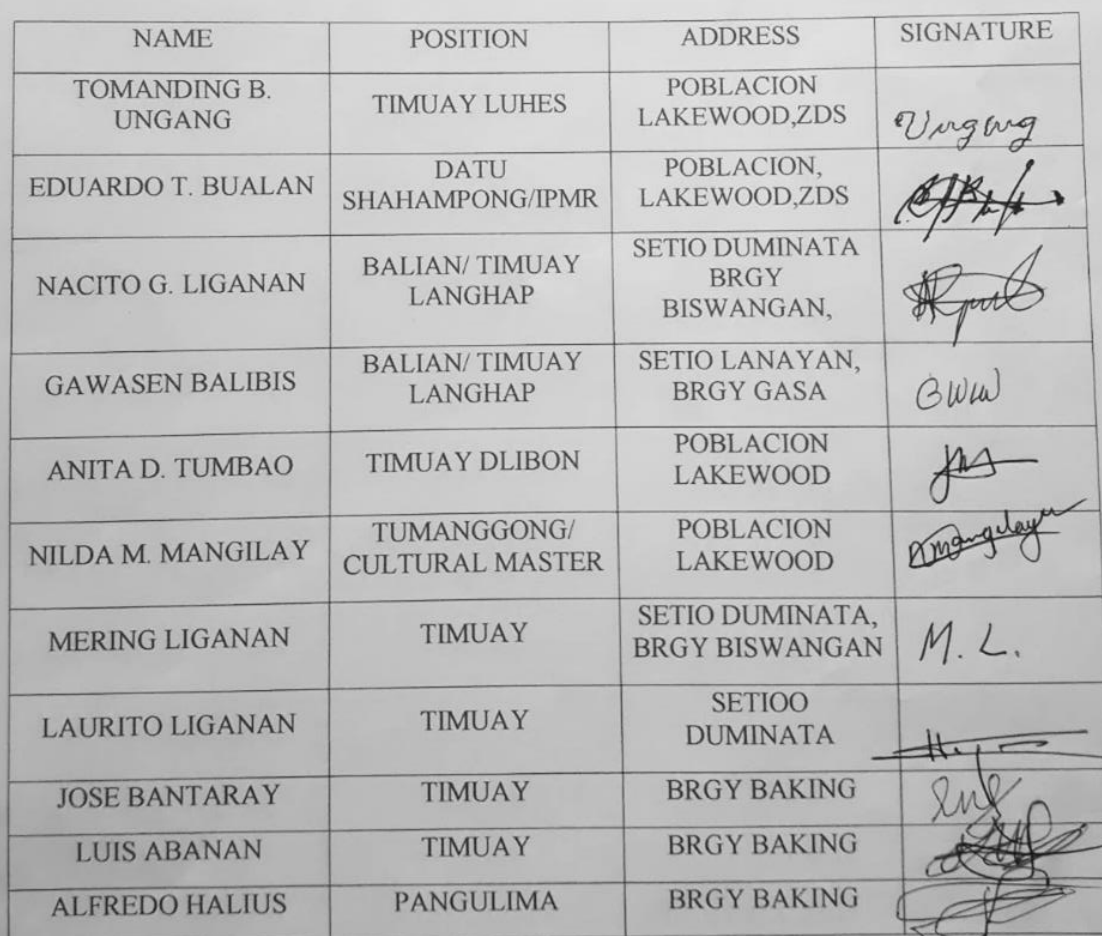 NAME POSITION ADDRESS SIGNATURE
TOMANDING B. UNGANG TIMUAY LUHES POBLACION LAKEWOOD,ZDS Ungang
EDUARDO T. BUALAN DATU SHAHAMPONG/IPMR POBLACION, LAKEWOOD,ZDS
NACITO G. LIGANAN BALIAN/ TIMUAY LANGHAP SETIO DUMINATA BRGY BISWANGAN,
GAWASEN BALIBIS BALIAN/ TIMUAY LANGHAP SETIO LANAYAN, BRGY GASA
ANITA D. TUMBAO TIMUAY DLIBON POBLACION LAKEWOOD
NILDA M. MANGILAY TUMANGGONG/ CULTURAL MASTER POBLACION LAKEWOOD
MERING LIGANAN TIMUAY SETIO DUMINATA, BRGY BISWANGAN M. L.
LAURITO LIGANAN TIMUAY SETIOO DUMINATA
JOSE BANTARAY TIMUAY BRGY BAKING
LUIS ABANAN TIMUAY BRGY BAKING
ALFREDO HALIUS PANGULIMA BRGY BAKING